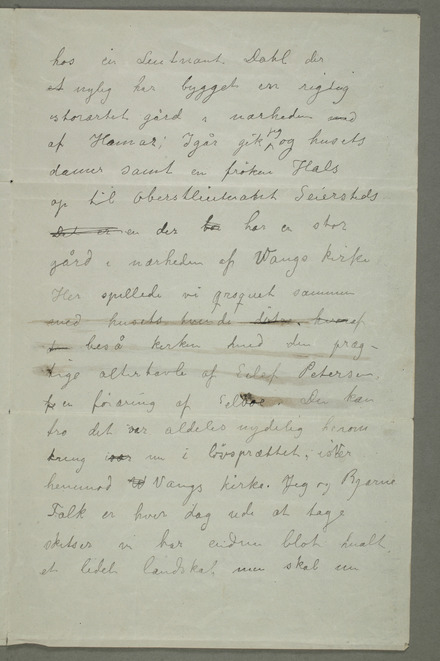 hos en Lieutnant Dahl der
nylig har bygget en rigtig
storartet gård i nærheden
af Hamar; Igår gik jeg og husets
damer samt en frøken Hals
op til Oberstlieutnant Seiersteds
der har en stor
gård i nærheden af Wangs kirke
Her spillede vi croquet sammen
med husets
beså kirken med den præg-
tige altertavle af Eilef Petersen
en foræring af Den kan
tro det er aldeles nydelig herom
kring nu i løvsprættet, især
henimod Vangs kirke. Jeg og Bjarne
Falk er hver dag ude at tage
skitser vi har endnu blot malt
et lidet landskab men skal nu